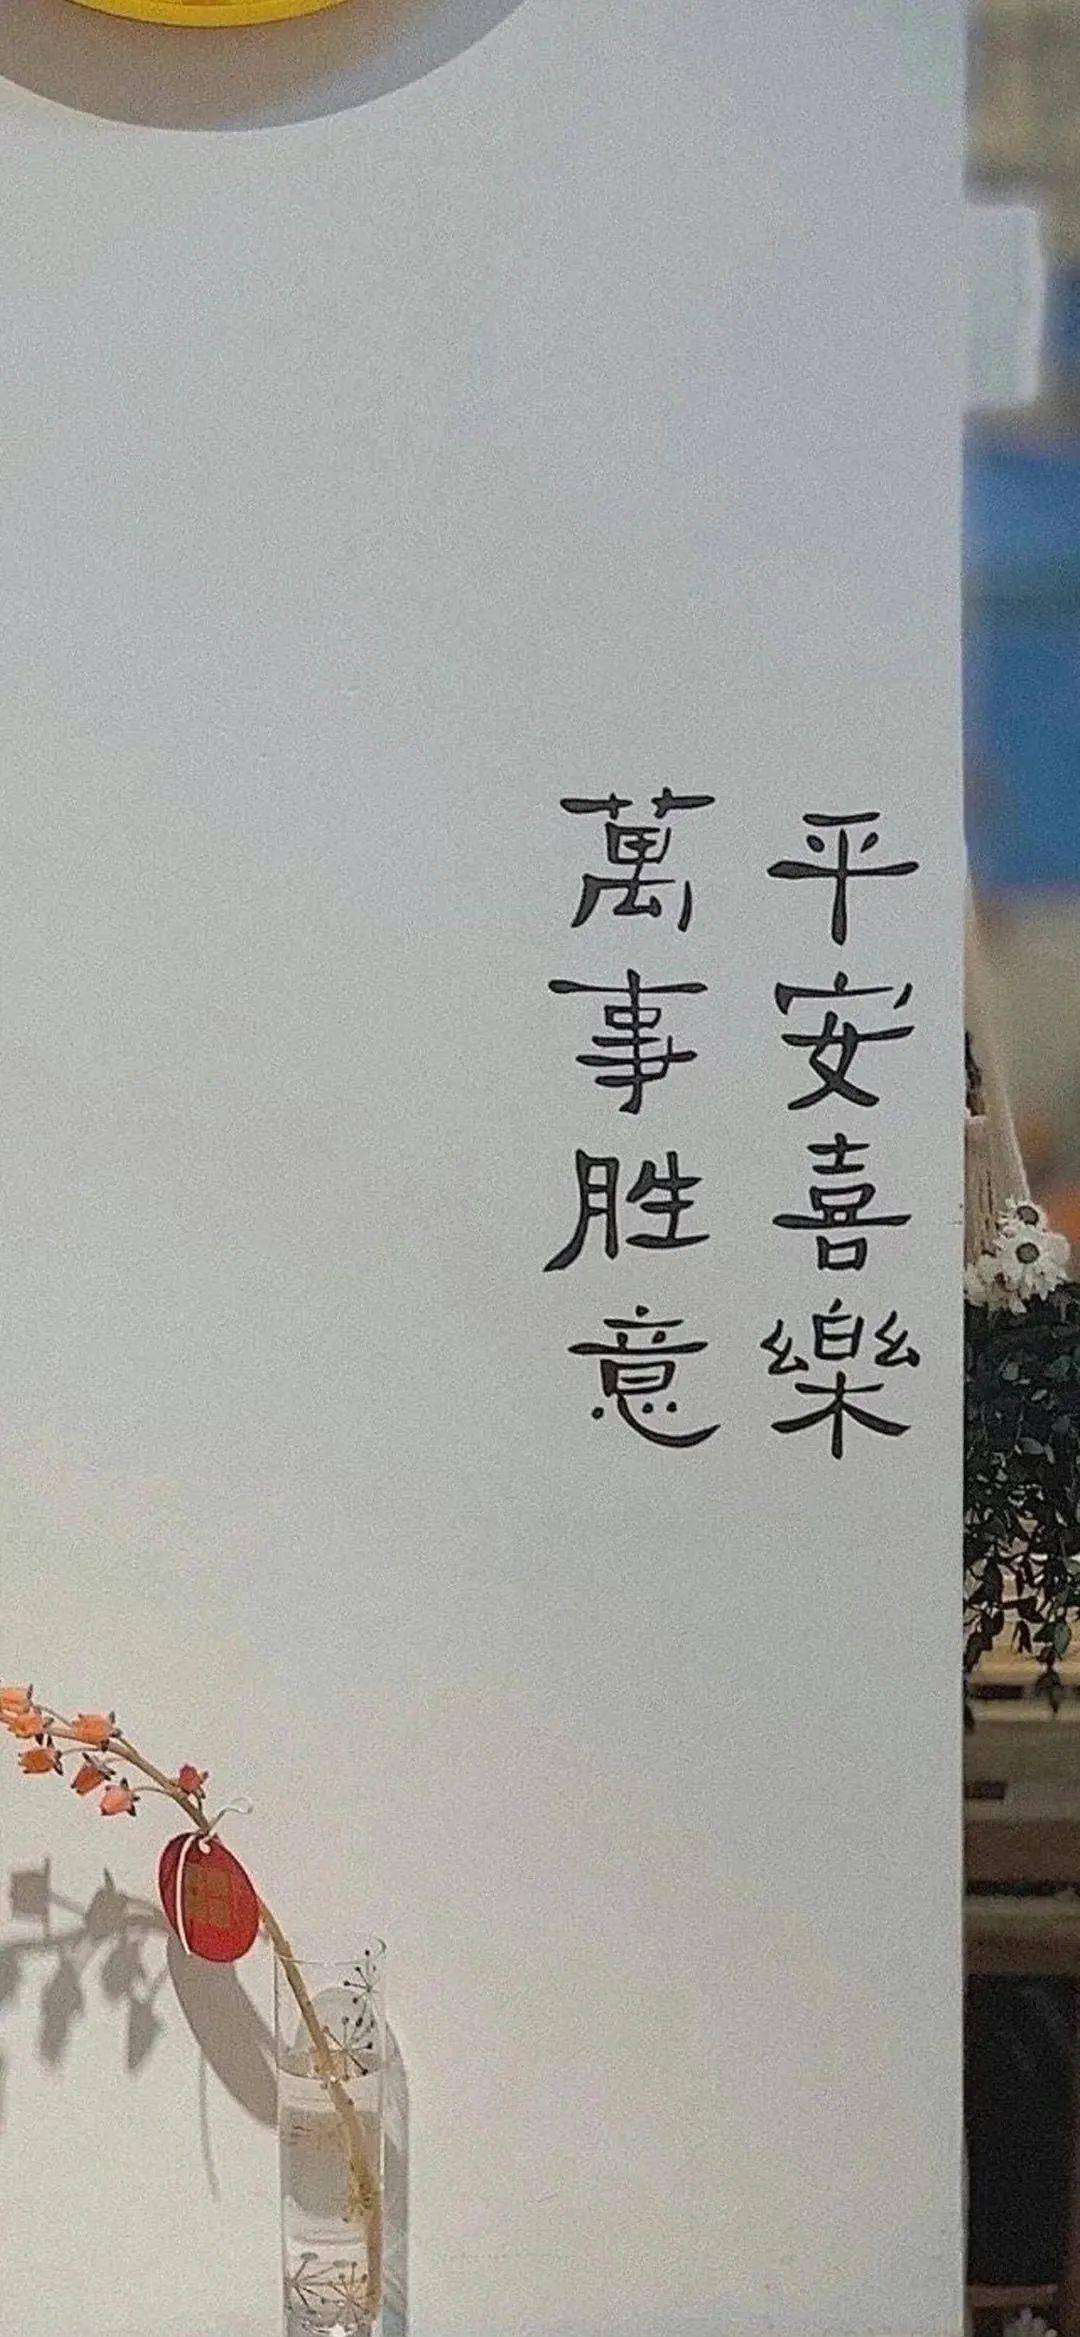 平安喜樂
萬事胜意